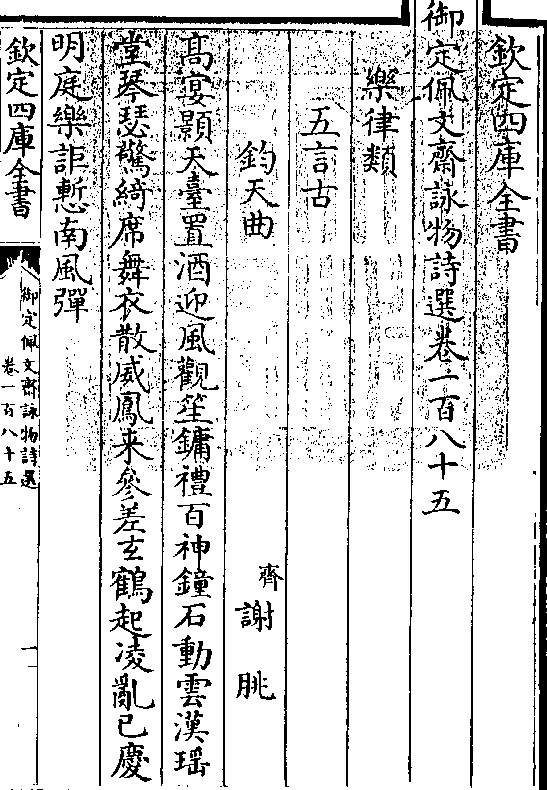 欽定四庫全書
御定佩文齋詠物詩選卷一百八十五
樂律類
五言古
鈞天曲
齊謝朓
高宴顥天臺置酒迎風觀笙鏞禮百神鐘石動雲漢瑶
堂琴瑟驚綺席舞衣散威鳳来參差玄鶴起凌亂已慶
明庭樂詎慙南風彈
欽定四庫全書
御定佩文齋詠物詩選
卷一百八十五
一